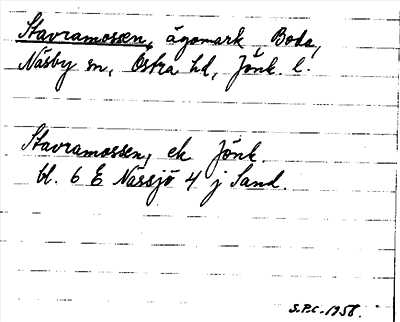 Stavramossen, ägomark, Boda,
Näsby sn, Östra hd, Jönk. l.
Stavramossen, ek Jönk.
bl. 6 E Nässjö 4 j Sand.
S.P.C. 1958.